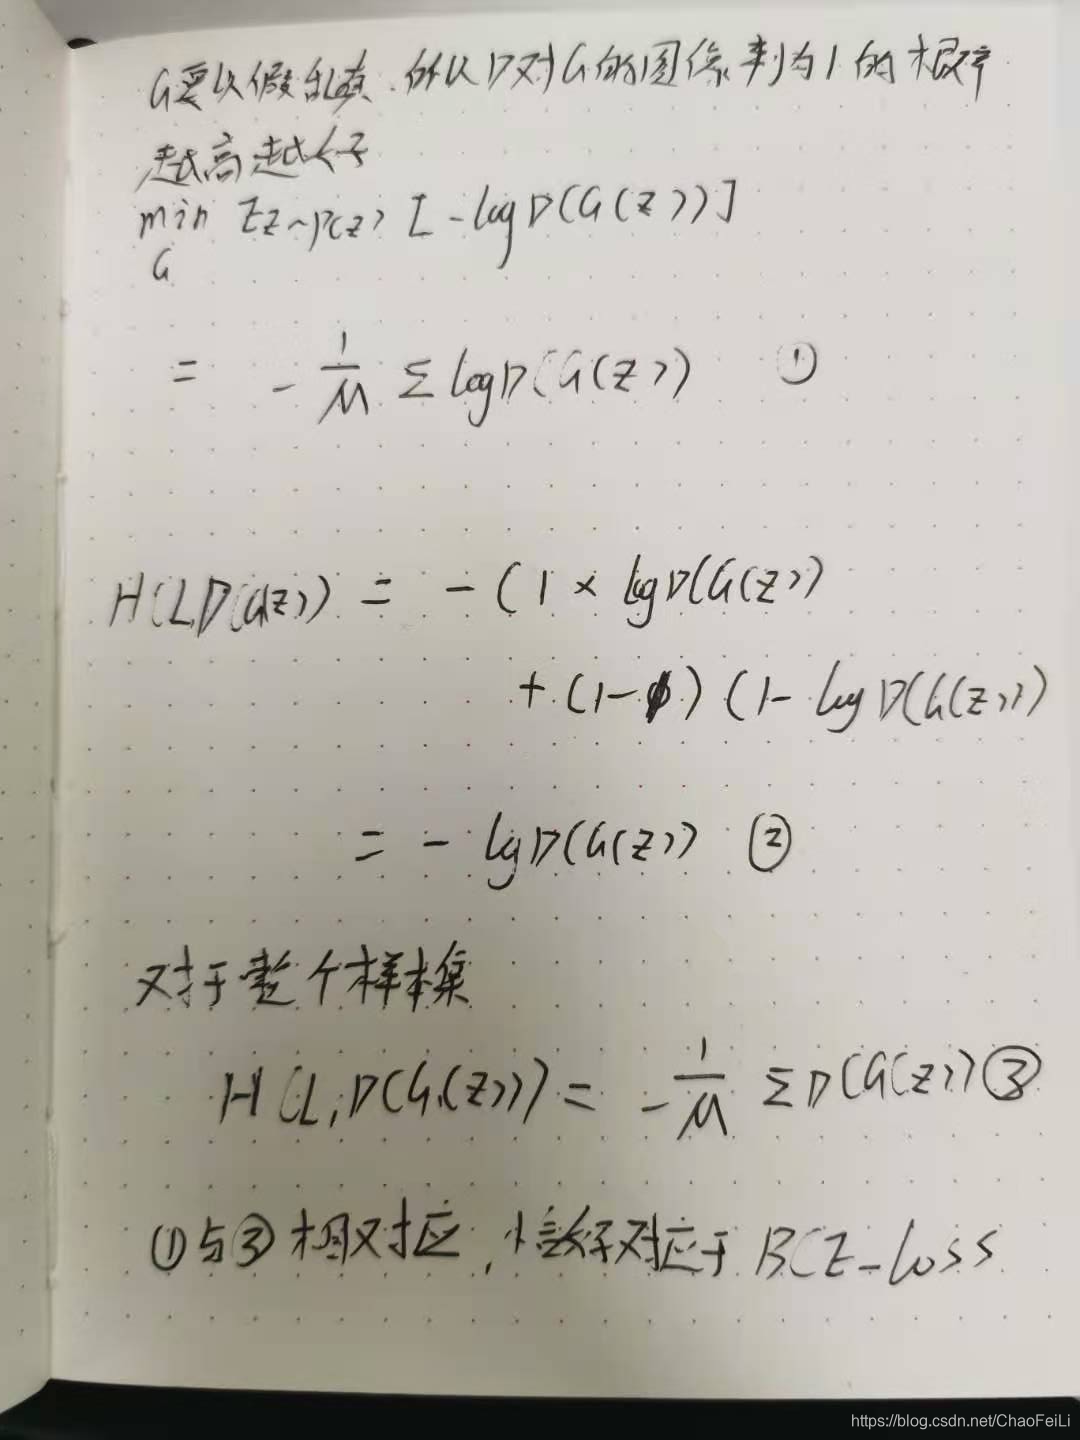 G要以假乱真.所以D对G的图像判为1的概率
越高越好
min Ez~p(z) [-logD(G(z))]
G
= - 1/M Σ logD(G(z)) ①
H(L,D(G(z)) = - (1 × logD(G(z))
+ (1-1) (1- log D(G(z)))
= - lgD(G(z)) ②
对于整个样本集
H(L,D(G(z))) = - 1/M Σ D(G(z)) ③
①与③相对应,恰好对应于BCE-loss
https://blog.csdn.net/ChaoFeiLi